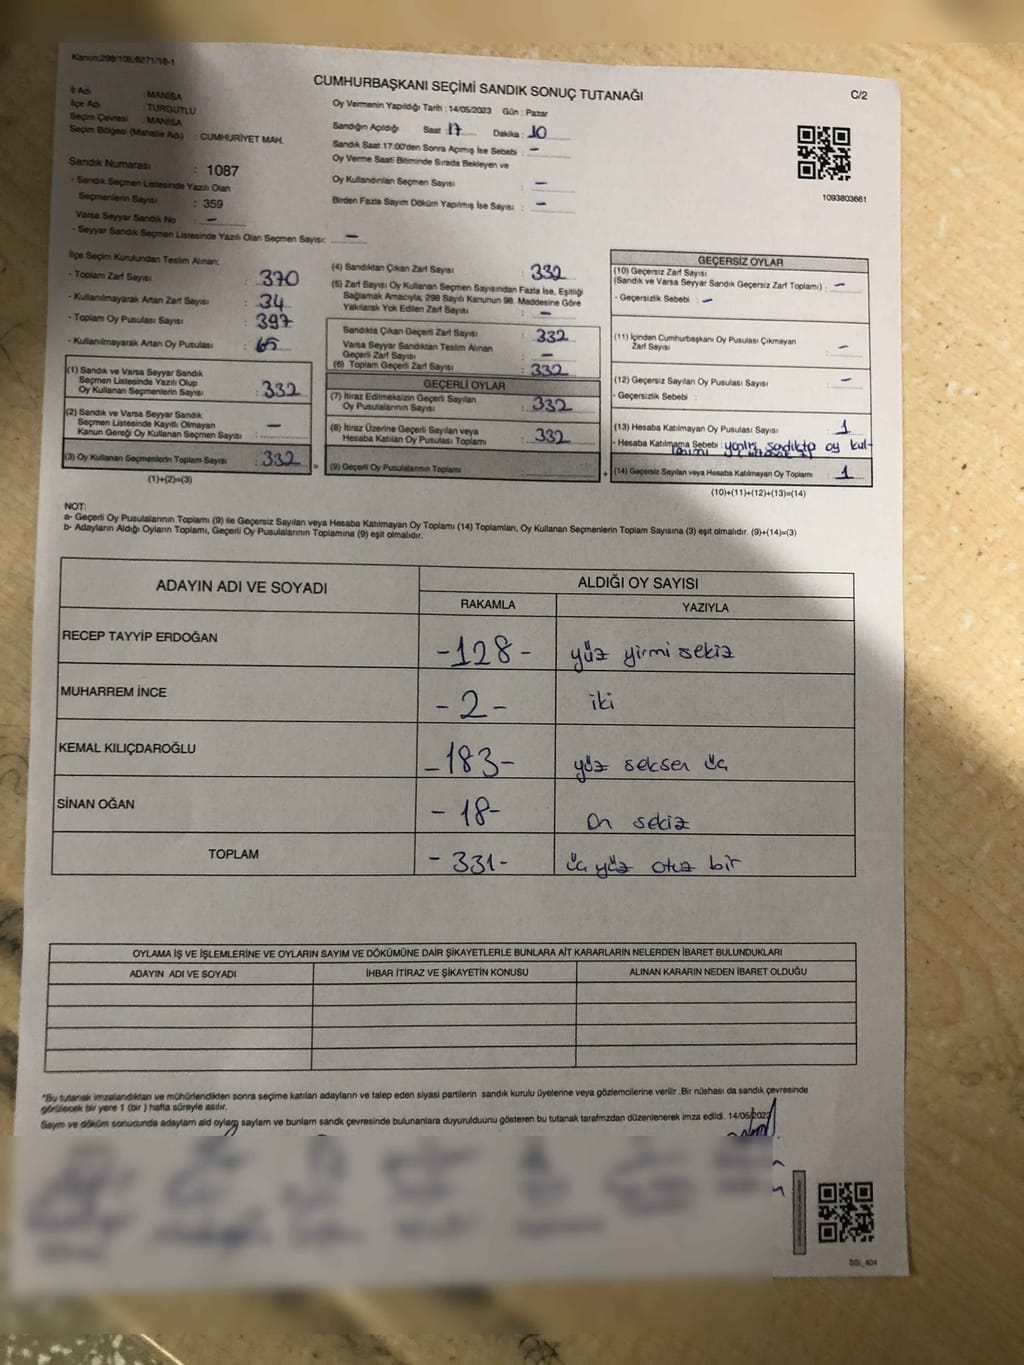 Kanun:298/105,6271/18-1
CUMHURBAŞKANI SEÇİMİ SANDIK SONUÇ TUTANAĞI
C/2
İl Adı : MANİSA
İlçe Adı : TURGUTLU
Seçim Çevresi : MANİSA
Seçim Bölgesi (Mahalle Adı) : CUMHURİYET MAH.
Oy Vermenin Yapıldığı Tarih : 14/05/2023 Gün : Pazar
Sandığın Açıldığı Saat 17 Dakika : 10
Sandık Saat 17:00'den Sonra Açımış İse Sebebi : -
Oy Verme Saati Bitiminde Sırada Bekleyen ve
Oy Kullandırılan Seçmen Sayısı : -
Birden Fazla Sayım Döküm Yapılmış İse Sayısı : -
1093803661
Sandık Numarası : 1087
- Sandık Seçmen Listesinde Yazılı Olan
Seçmenlerin Sayısı : 359
Varsa Seyyar Sandık No : -
- Seyyar Sandık Seçmen Listesinde Yazılı Olan Seçmen Sayısı: -
İlçe Seçim Kurulundan Teslim Alınan;
- Toplam Zarf Sayısı : 370
- Kullanılmayarak Artan Zarf Sayısı : 34
- Toplam Oy Pusulası Sayısı : 397
- Kullanılmayarak Artan Oy Pusulası : 65
(1) Sandık ve Varsa Seyyar Sandık
Seçmen Listesinde Yazılı Olup
Oy Kullanan Seçmenlerin Sayısı : 332
(2) Sandık ve Varsa Seyyar Sandık
Seçmen Listesinde Kayıtlı Olmayan
Kanun Gereği Oy Kullanan Seçmen Sayısı : -
(3) Oy Kullanan Seçmenlerin Toplam Sayısı : 332
(1)+(2)=(3)
(4) Sandıktan Çıkan Zarf Sayısı : 332
(5) Zarf Sayısı Oy Kullanan Seçmen Sayısından Fazla İse, Eşitliği
Bağlamak Amacıyla; 298 Sayılı Kanunun 98. Maddesine Göre
Yakılarak Yok Edilen Zarf Sayısı : -
Sandıkta Çıkan Geçerli Zarf Sayısı : 332
Varsa Seyyar Sandıktan Teslim Alınan
Geçerli Zarf Sayısı : -
(6) Toplam Geçerli Zarf Sayısı : 332
GEÇERLİ OYLAR
(7) İtiraz Edilmeksizin Geçerli Sayılan
Oy Pusulalarının Sayısı : 332
(8) İtiraz Üzerine Geçerli Sayılan veya
Hesaba Katılan Oy Pusulası Toplamı : 332
= (9) Geçerli Oy Pusulalarının Toplamı : +
GEÇERSİZ OYLAR
(10) Geçersiz Zarf Sayısı
(Sandık ve Varsa Seyyar Sandık Geçersiz Zarf Toplamı) : -
- Geçersizlik Sebebi : -
(11) İçinden Cumhurbaşkanı Oy Pusulası Çıkmayan
Zarf Sayısı : -
(12) Geçersiz Sayılan Oy Pusulası Sayısı : -
- Geçersizlik Sebebi :
(13) Hesaba Katılmayan Oy Pusulası Sayısı : 1
- Hesaba Katılmama Sebebi : yanlış sandıkta oy kul-
(14) Geçersiz Sayılan veya Hesaba Katılmayan Oy Toplamı : 1
(10)+(11)+(12)+(13)=(14)
NOT:
a- Geçerli Oy Pusulalarının Toplamı (9) ile Geçersiz Sayılan veya Hesaba Katılmayan Oy Toplamı (14) Toplamları, Oy Kullanan Seçmenlerin Toplam Sayısına (3) eşit olmalıdır. (9)+(14)=(3)
b- Adayların Aldığı Oyların Toplamı, Geçerli Oy Pusulalarının Toplamına (9) eşit olmalıdır.
ADAYIN ADI VE SOYADI
ALDIĞI OY SAYISI
RAKAMLA YAZIYLA
RECEP TAYYİP ERDOĞAN -128- yüz yirmi sekiz
MUHARREM İNCE -2- iki
KEMAL KILIÇDAROĞLU -183- yüz seksen üç
SİNAN OĞAN -18- on sekiz
TOPLAM -331- üç yüz otuz bir
OYLAMA İŞ VE İŞLEMLERİNE VE OYLARIN SAYIM VE DÖKÜMÜNE DAİR ŞİKAYETLERLE BUNLARA AİT KARARLARIN NELERDEN İBARET BULUNDUKLARI
ADAYIN ADI VE SOYADI İHBAR İTİRAZ VE ŞİKAYETİN KONUSU ALINAN KARARIN NEDEN İBARET OLDUĞU
"Bu tutanak imzalandıktan ve mühürlendikten sonra seçime katılan adayların ve talep eden siyasi partilerin sandık kurulu üyelerine veya gözlemcilerine verilir .Bir nüshası da sandık çevresinde
görülecek bir yere 1 (bir ) hafta süreyle asılır.
Sayım ve döküm sonucunda adayların aldı oyların sayılam ve bunların sandık çevresinde bulunanlara duyurulduunu gösteren bu tutanak tarafımzdan düzenlenerek imza edildi. 14/05/2023
SSI_404